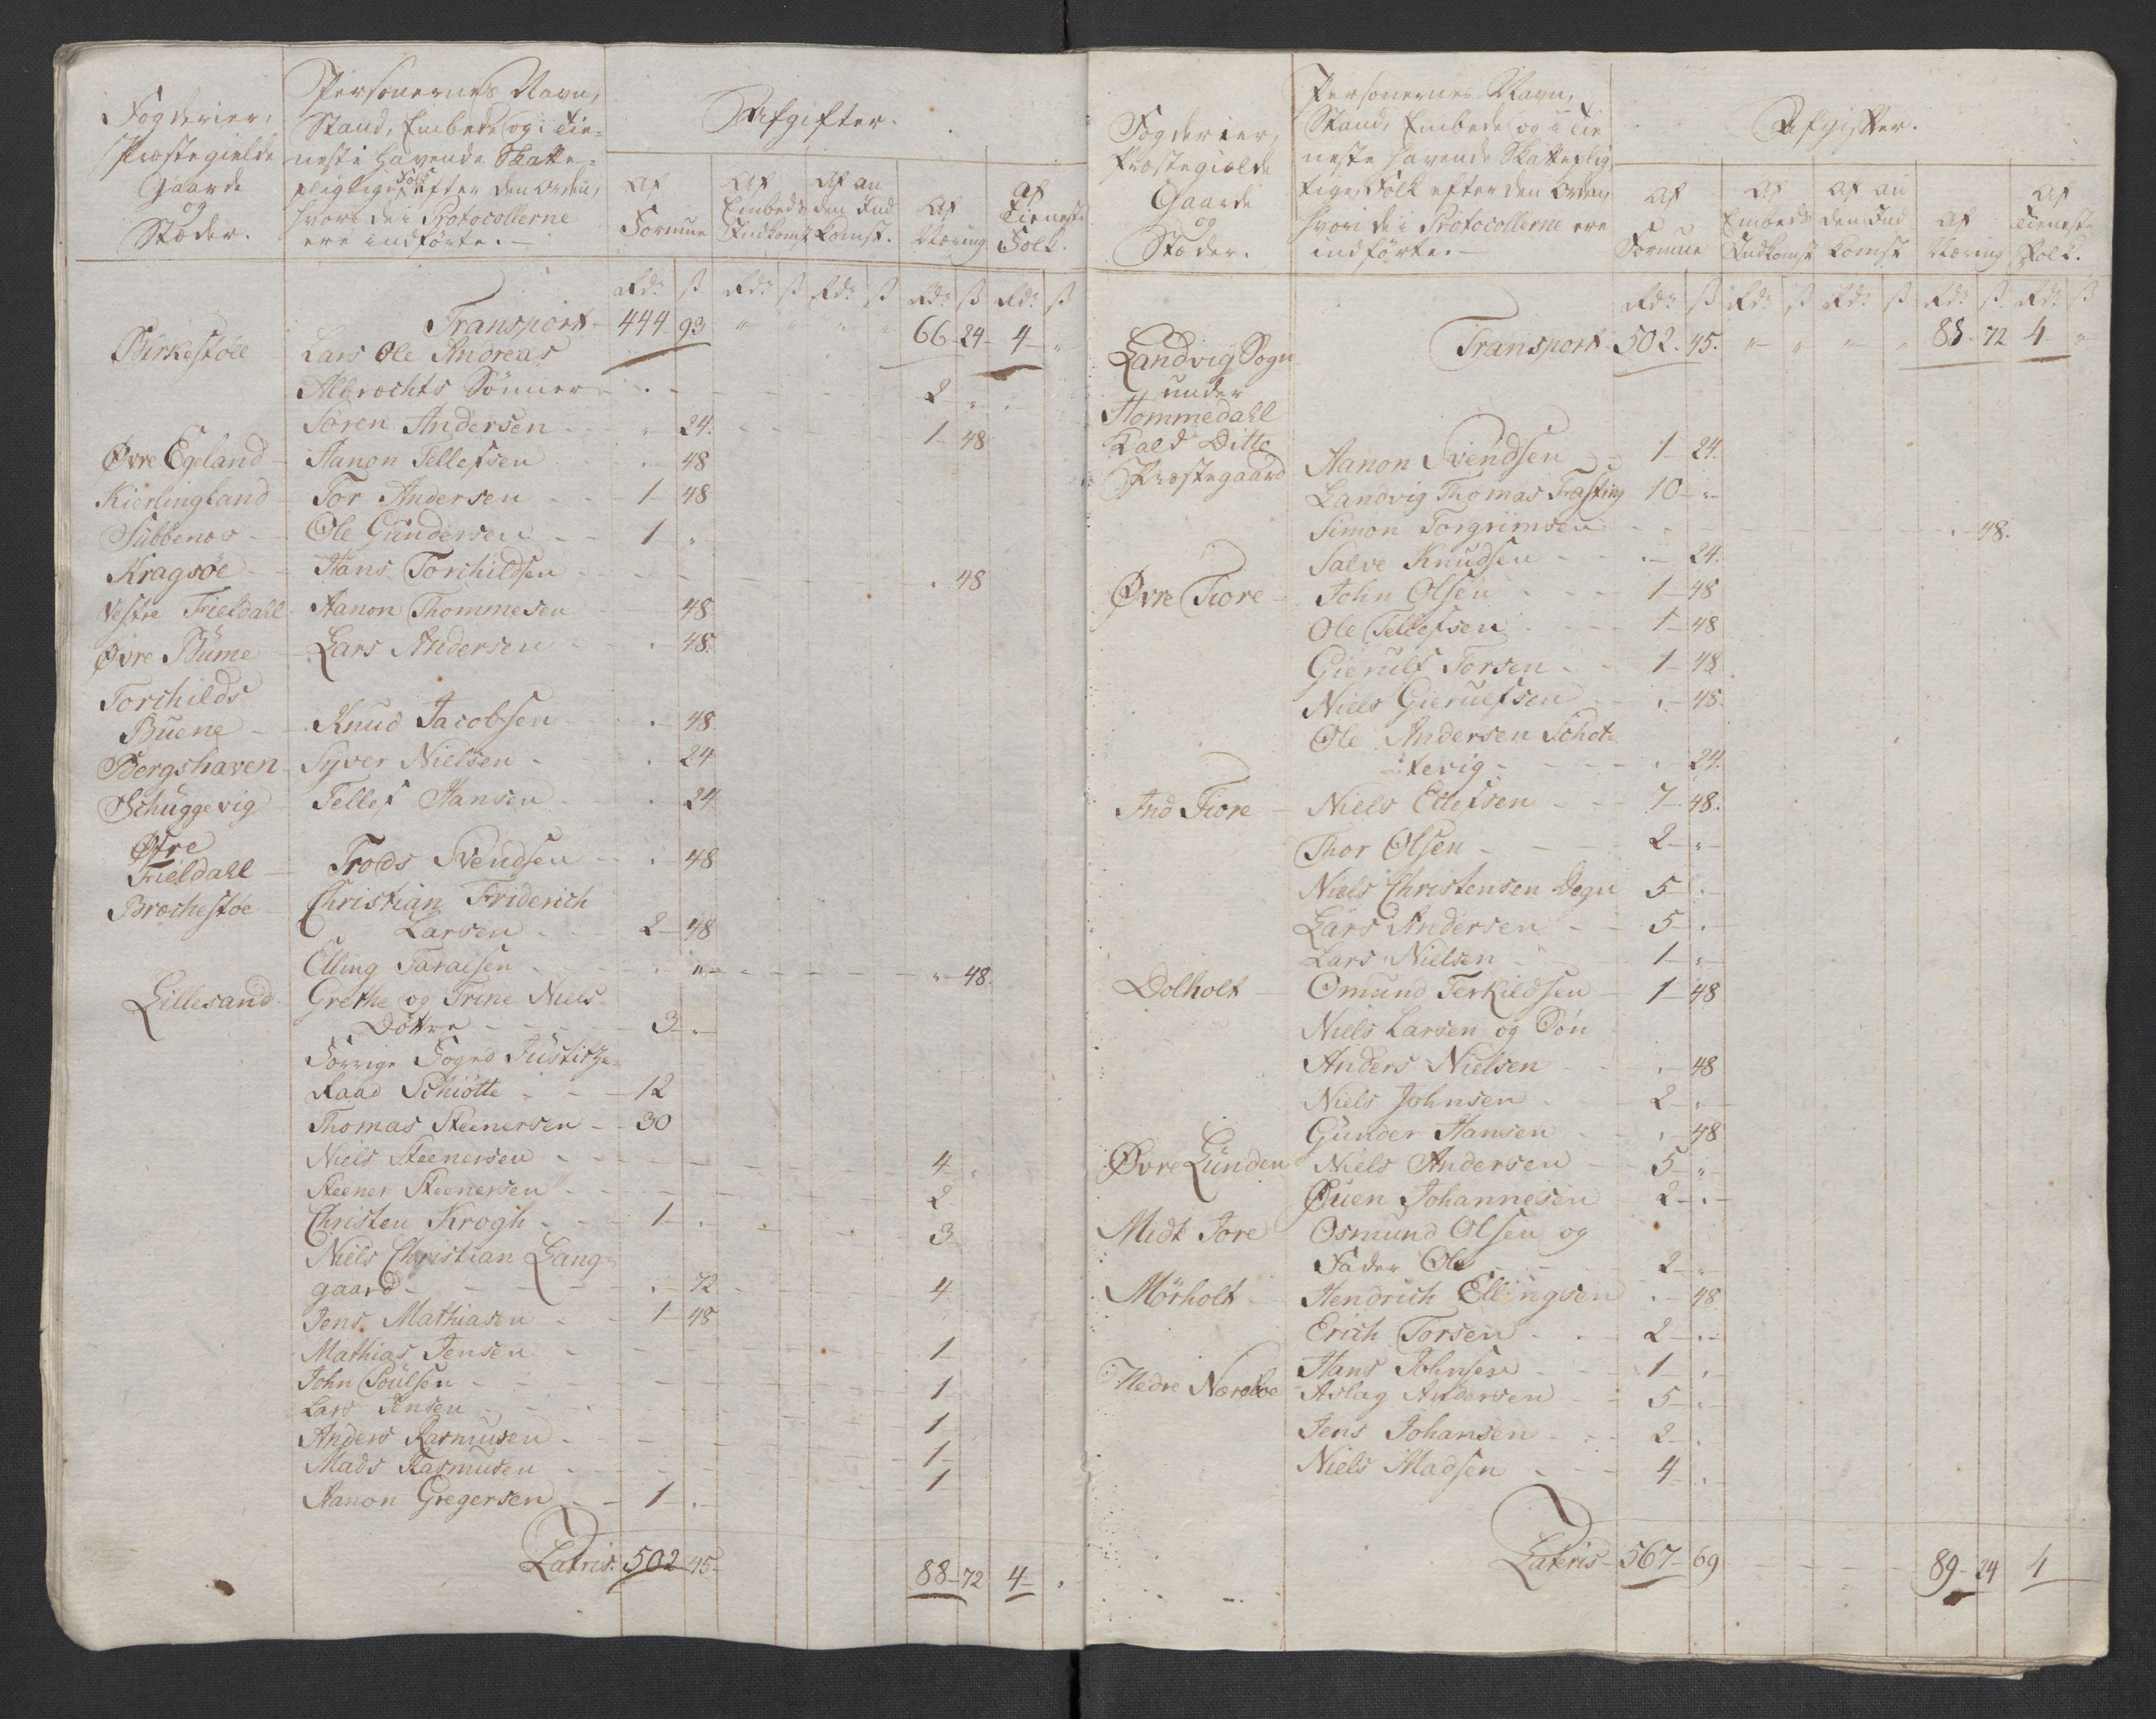 Fogderier,
Præstegielde
Gaarde
og
Stæder.
Personernes Navn,
Stand, Embede og i Tie-
neste havende Skatte-
pligtige Folk efter den Orden,
hvori de i Protocollerne
ere indførte.
Afgifter.
Af Formue
Af Embeds Indkomst
Af an den Ind komst.
Af Næring
Af Tieneste Folk.
Rd. ß Rd. ß Rd. ß Rd. ß Rd. ß
Transport 444 93 " " " " 66 24 4 "
Birkestøll Lars Ole Andreas
Albrechts Sönner 2 "
Søren Andersen " 24. 1 48
Øvre Egeland Aanon Tellefsen - 48
Kierlingland Tor Andersen 1 48
Stübbenes Ole Gundersen 1 "
Kragsøe Hans Torchildsen . 48
Vestre Trieldall Aanon Thommesen 48
Øvre Büme Lars Andersen 48.
Torchilds
Buene Knud Jacobsen 48
Bergshaven Syver Nielsen 24
Schüggevig Tellef Hansen 24
Østre
Trieldall Trods Svendsen 48
Brochestøe Christian Friderich
Larsen 2 48
Elling Taraldsen " " 48.
Lillesand Grethe og Trine Niels-
Døttre 3 .
Forrige Foged Justitz-
Raad Schiøtte 12
Thomas Steenersen 30
Niels Steenersen 4 "
Steener Steenersen 2
Christen Krogh 1 . 3
Niels Christian Lang-
gaard . 72 4
Jens Mathiasen 1 48
Mathias Jensen 1
John Poulsen 1
Lars Jensen
Anders Rasmusen 1
Mads Rasmusen 1
Aanon Gregersen 1 . 1
Lateris. 502 45 88 72 4 .
Fogderier,
Præstegielde
Gaarde
og
Stæder.
Personernes Navn,
Stand, Embede og i Tie
neste havende Skatteplig
tige Folk efter den Orden,
hvori de i Protocollerne ere
indførte.
Afgifter.
Af Formue
Af Embeds Indkomst
Af an den Ind komst
Af Næring
Af Tieneste Folk.
Rd. ß Rd. ß Rd. ß Rd. ß Rd. ß
Transport 502. 45. " " " " 88 72 4 "
Landvig Sogn
under
Hommedahl
Kald Ditto
Præstegaard Aanon Svendsen 1 24.
Landvig Thomas Frasting 10 "
Simon Torgrimsen . 48.
Salve Knudsen . 24.
Øvre Fiore John Olsen 1 48
Ole Tellefsen 1 48
Gierulf Torsen 1 48
Niels Gierulfsen . 48.
Ole Andersen Schot-
tevig . 24.
Ind Fiore Niels Ellefsen 7 48.
Thor Olsen 2 "
Niels Christensen Degn 5 .
Lars Andersen 5 .
Lars Nielsen 1 "
Dolholt Omund Terkildsen 1 48
Niels Larsen og Søn
Anders Nielsen . 48
Niels Johnsen 2 "
Gunder Hansen . 48
Øvre Lünden Niels Andersen 5 "
Øuen Johannesen 2 .
Midt Fore Osmund Olsen og
Fader Ole 2 "
Mørholt Hendrich Ellingsen . 48
Erich Torsen 2 .
Nedre Næroloe Hans Johnsen 1 .
Aslag Andersen 5 "
Jens Johansen 2 .
Niels Madsen 4 .
Lateris 567 69 89 24 4